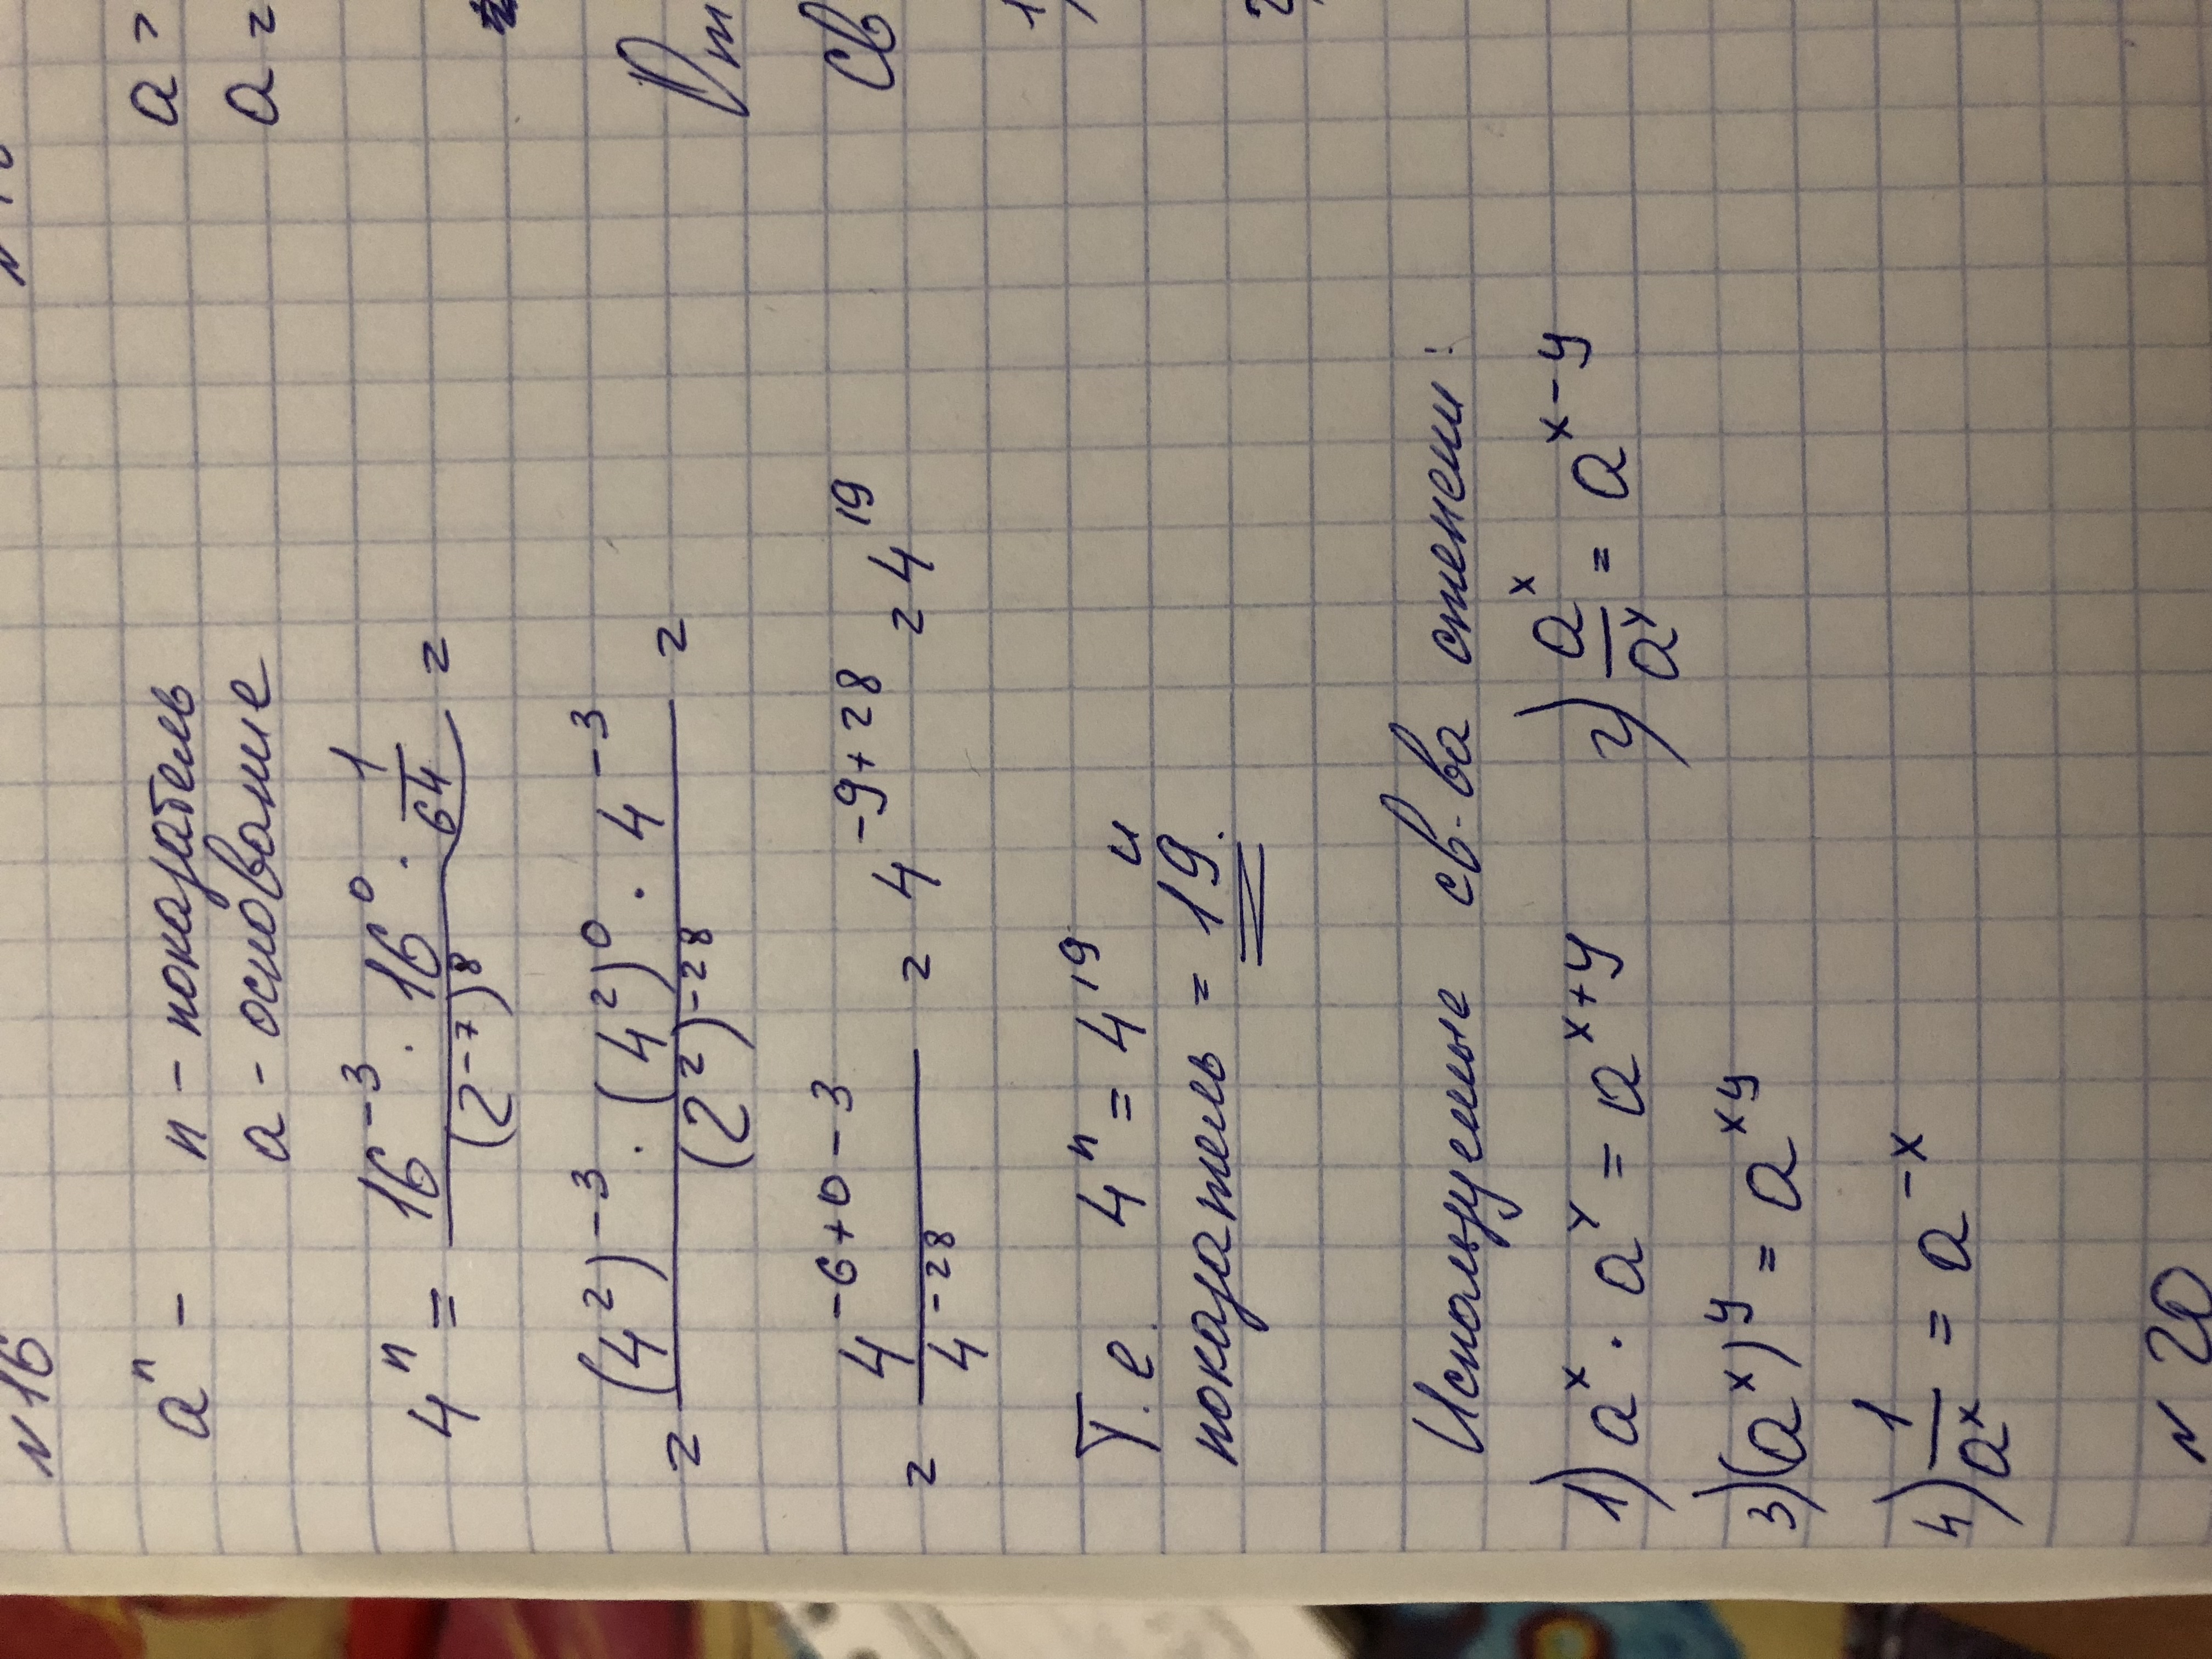 N16
aⁿ - n - показатель
a - основание
4ⁿ = (16⁻³ · 16⁰ · 1/64) / (2⁻⁷)⁸ =
= ((4²)⁻³ · (4²)⁰ · 4⁻³) / (2²)⁻²⁸ =
= 4⁻⁶⁺⁰⁻³ / 4⁻²⁸ = 4⁻⁹⁺²⁸ = 4¹⁹
Т.е. 4ⁿ = 4¹⁹ и
показатель = 19.
Используемые св-ва степени:
1) aˣ · aʸ = aˣ⁺ʸ 2) aˣ/aʸ = aˣ⁻ʸ
3) (aˣ)ʸ = aˣʸ
4) 1/aˣ = a⁻ˣ
N20
a =
a =
Св
1)
2)